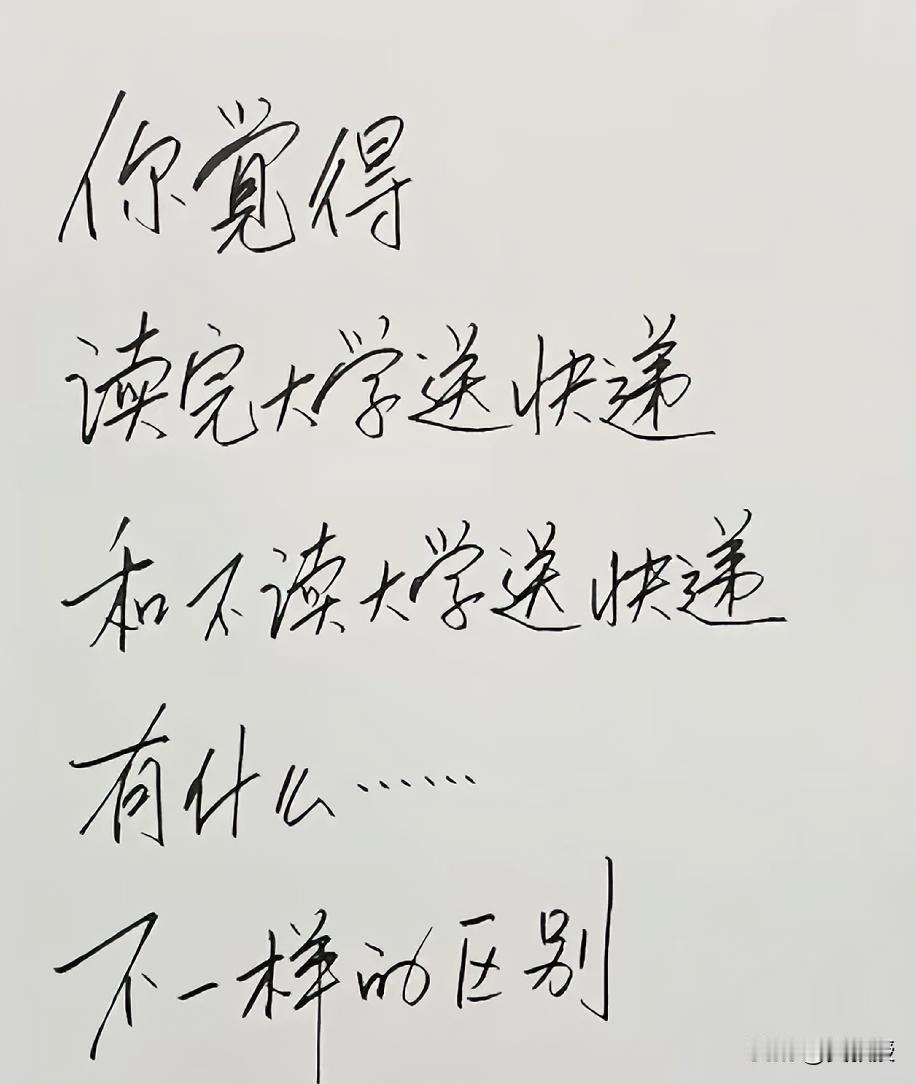 你觉得
读完大学送快递
和不读大学送快递
有什么……
不一样的区别